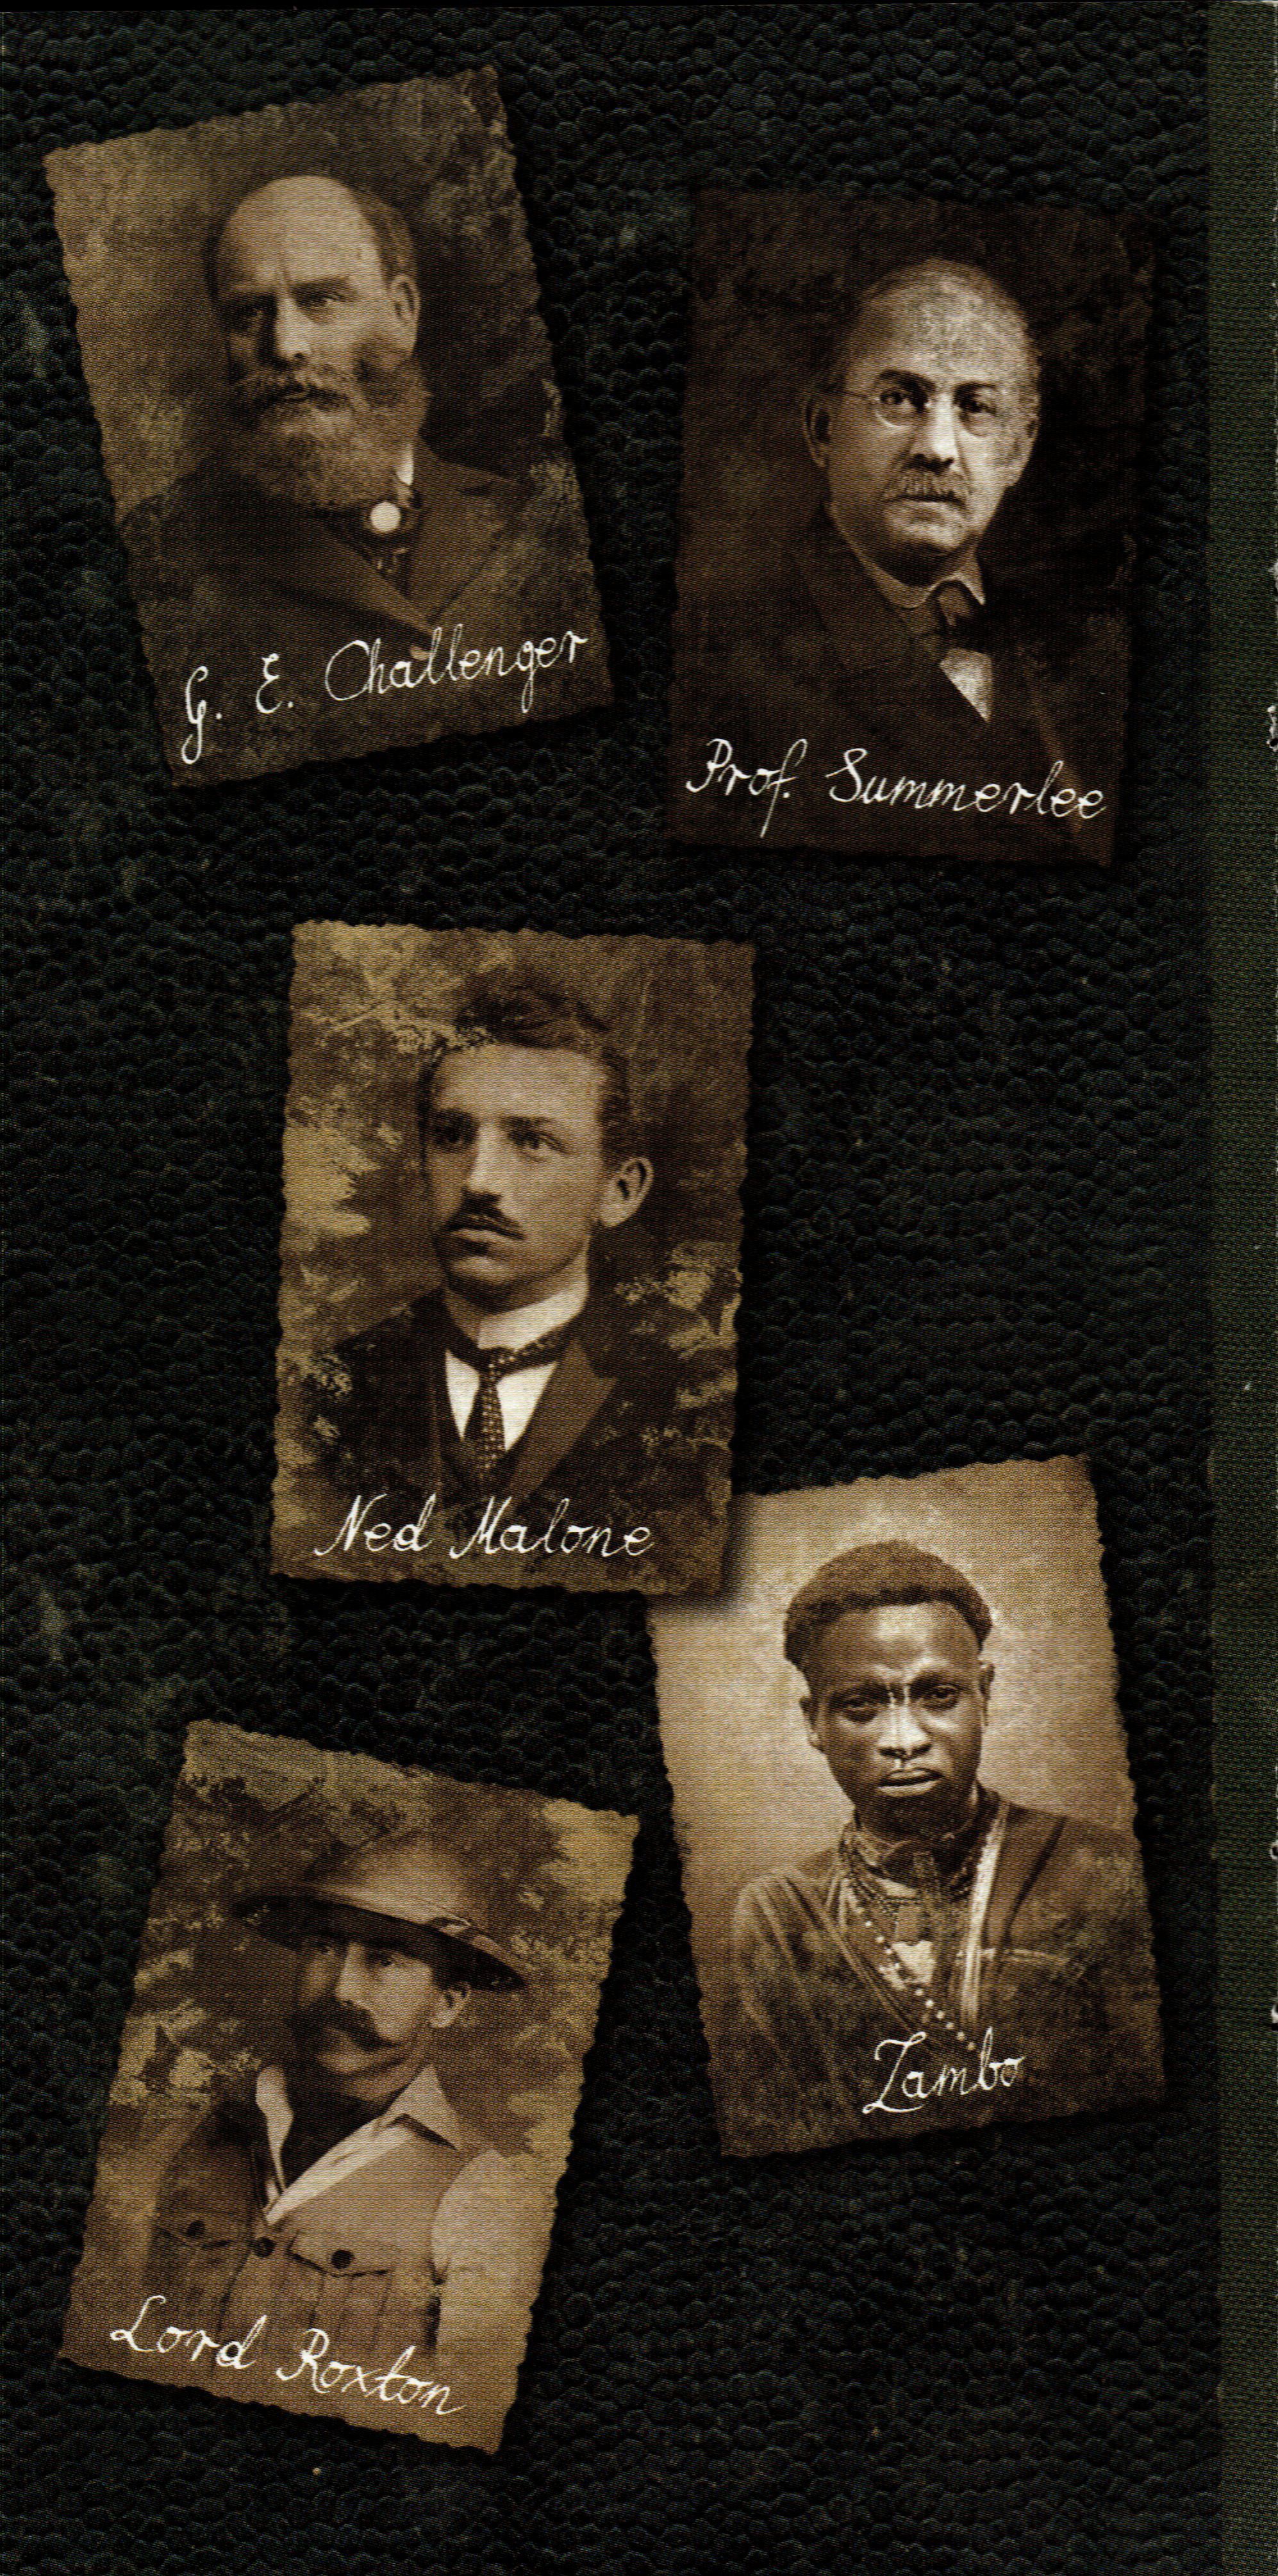 G. E. Challenger
Prof. Summerlee
Ned Malone
Zambo
Lord Roxton